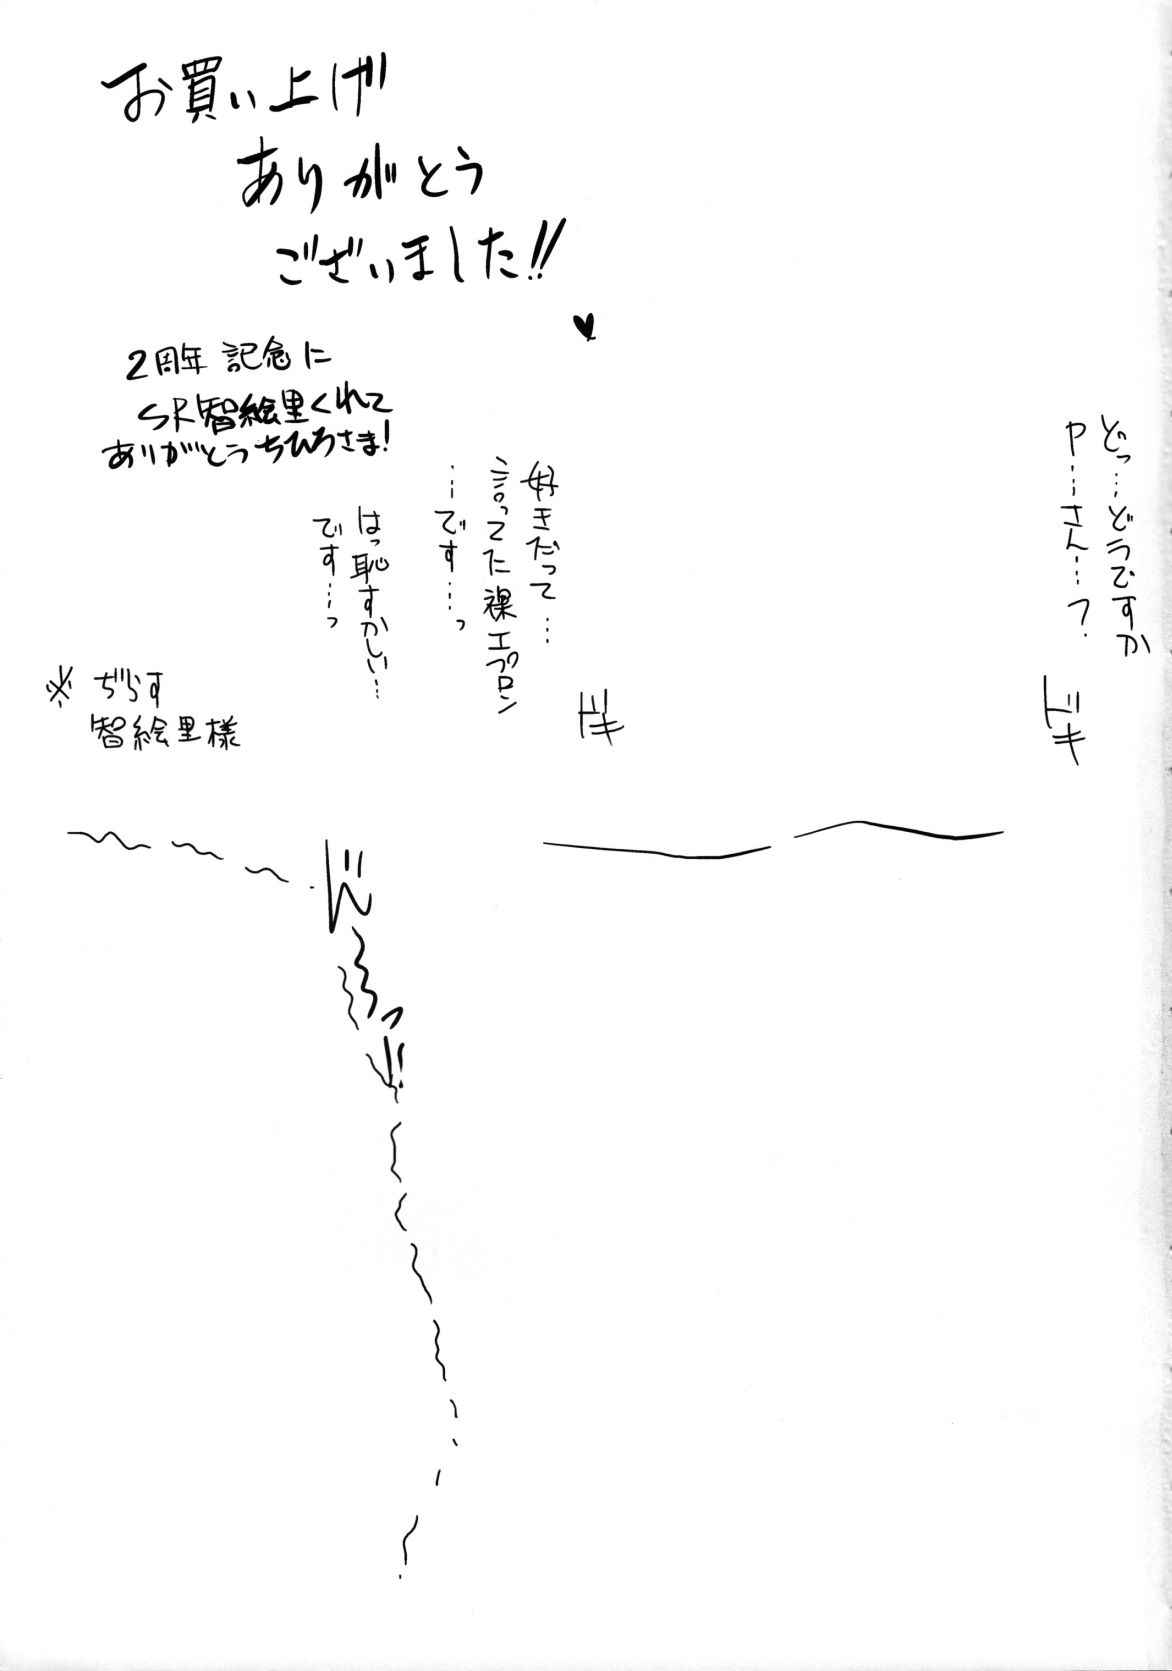 お買い上げ
ありがとう
ございました!!
♥
2周年 記念に
SR智絵里くれて
ありがとうちひろさま!
どっ…どうですか
P…さん…?
ドキ
好きだって…
言ってた裸エプロン
…です…っ
ドキ
はっ恥ずかしい…
です…っ
※ぢらす
智絵里様